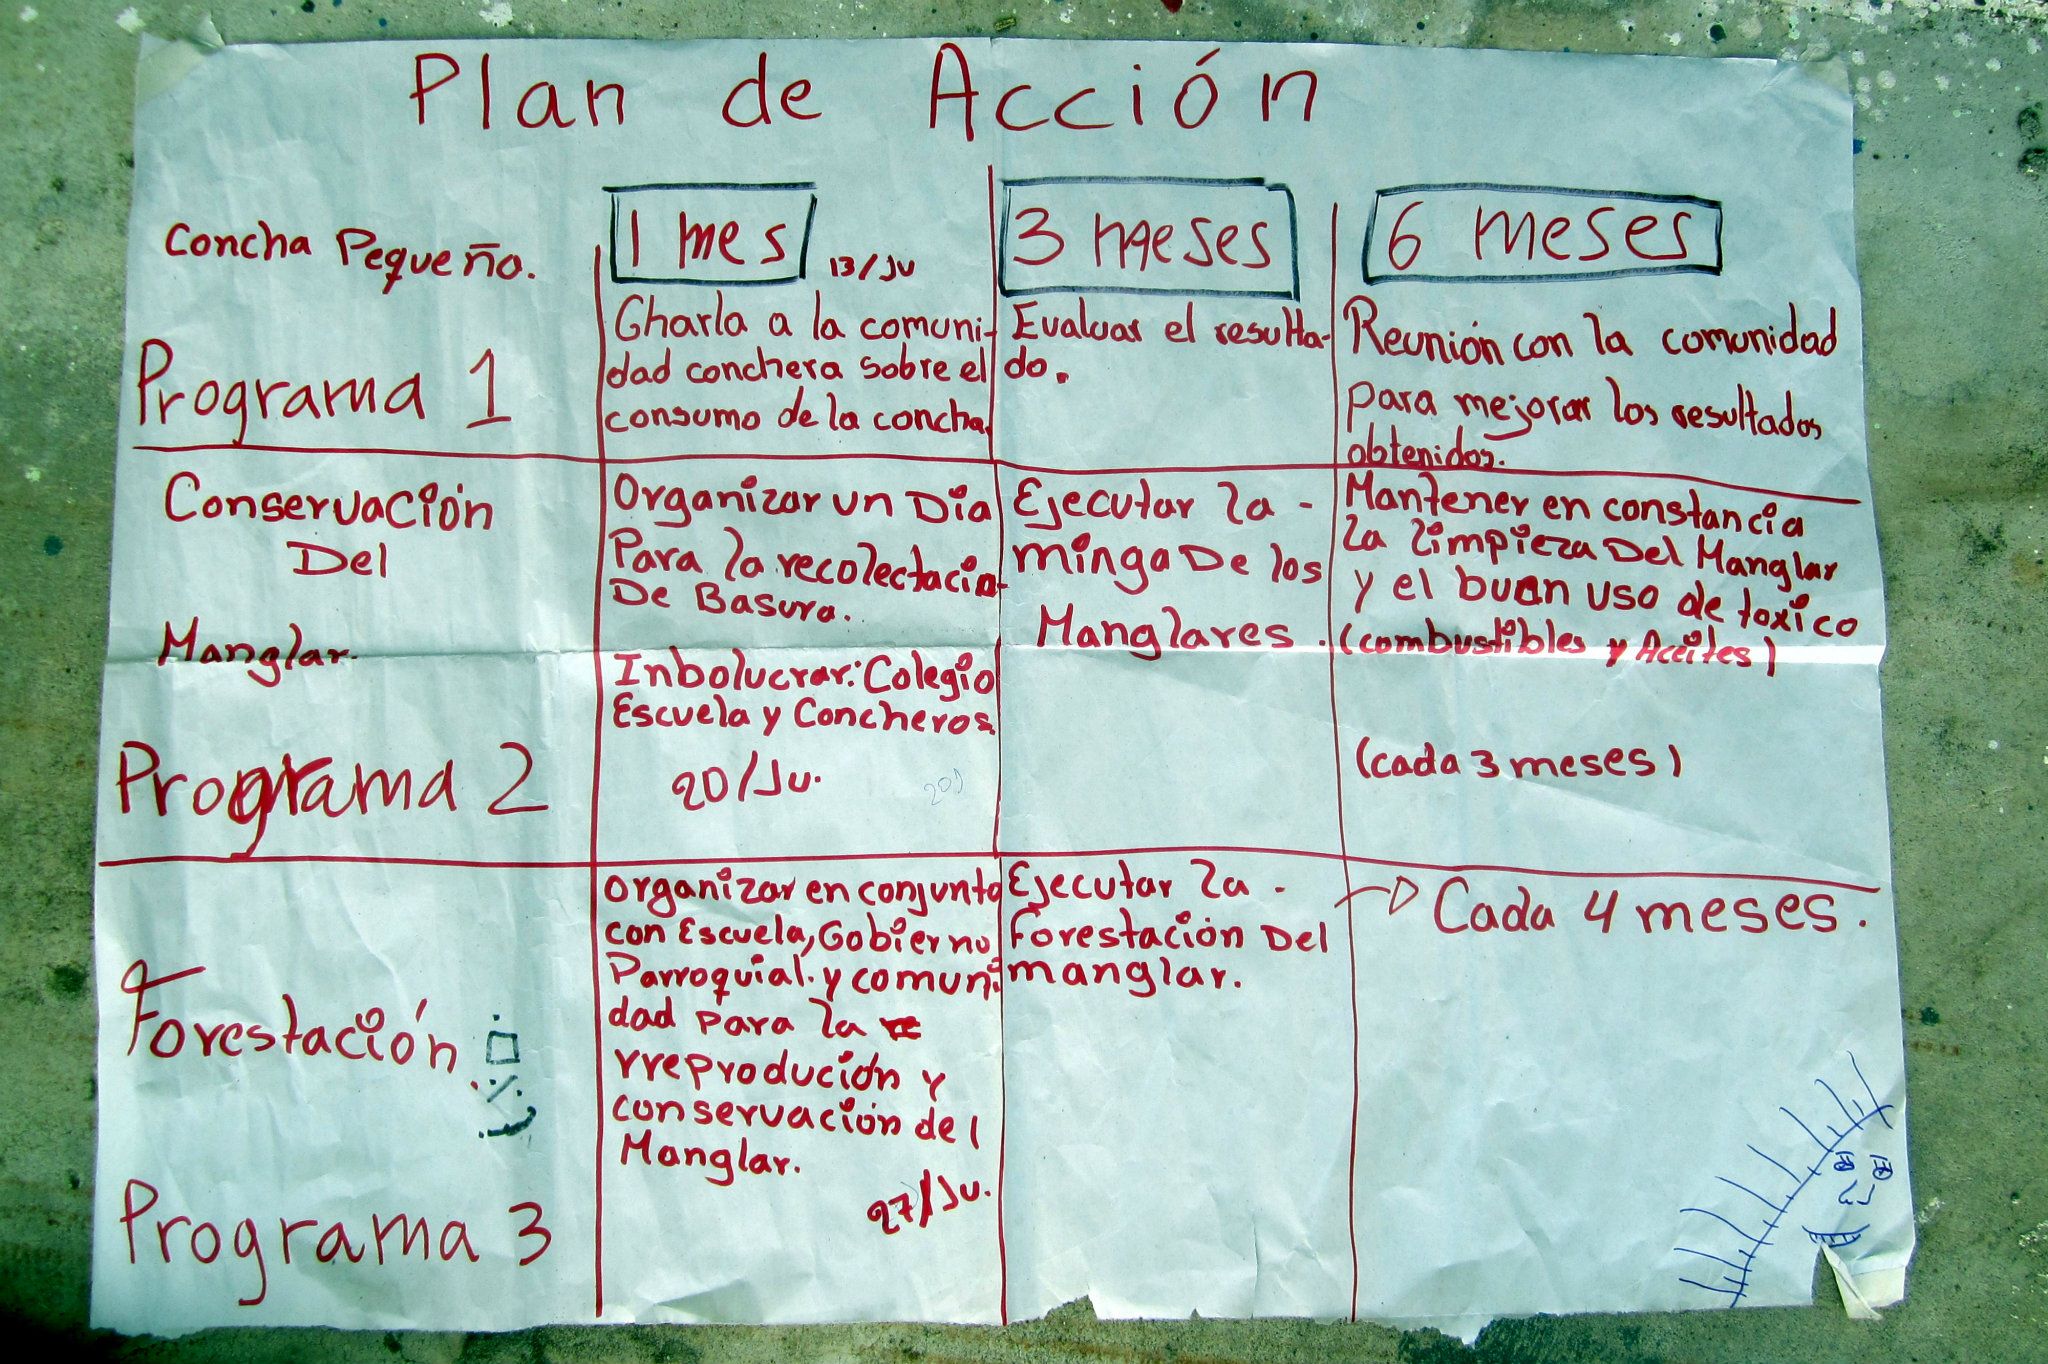 Plan de Acción
Concha Pequeño.
Programa 1
1 mes
13/Ju
Gharla a la comuni-
dad conchera sobre el
consumo de la concha.
3 meses
Evaluar el resulta-
do.
6 meses
Reunión con la comunidad
para mejorar los resultados
obtenidos.
Conservación
Del
Manglar.
Programa 2
Organizar un Dia
Para la recolectacion
De Basura.
Inbolucrar: Colegio
Escuela y Concheros.
20/Ju.
Ejecutar la -
minga De los
Manglares.
Mantener en constancia
la limpieza Del Manglar
y el buen uso de toxico
(combustibles y Aceites)
(cada 3 meses)
Forestación.
Programa 3
organizar en conjunto
con Escuela, Gobierno
Parroquial. y comuni
dad para la re
rreproducción y
conservación del
Manglar.
27/Ju.
Ejecutar la -
Forestación Del
manglar.
Cada 4 meses.